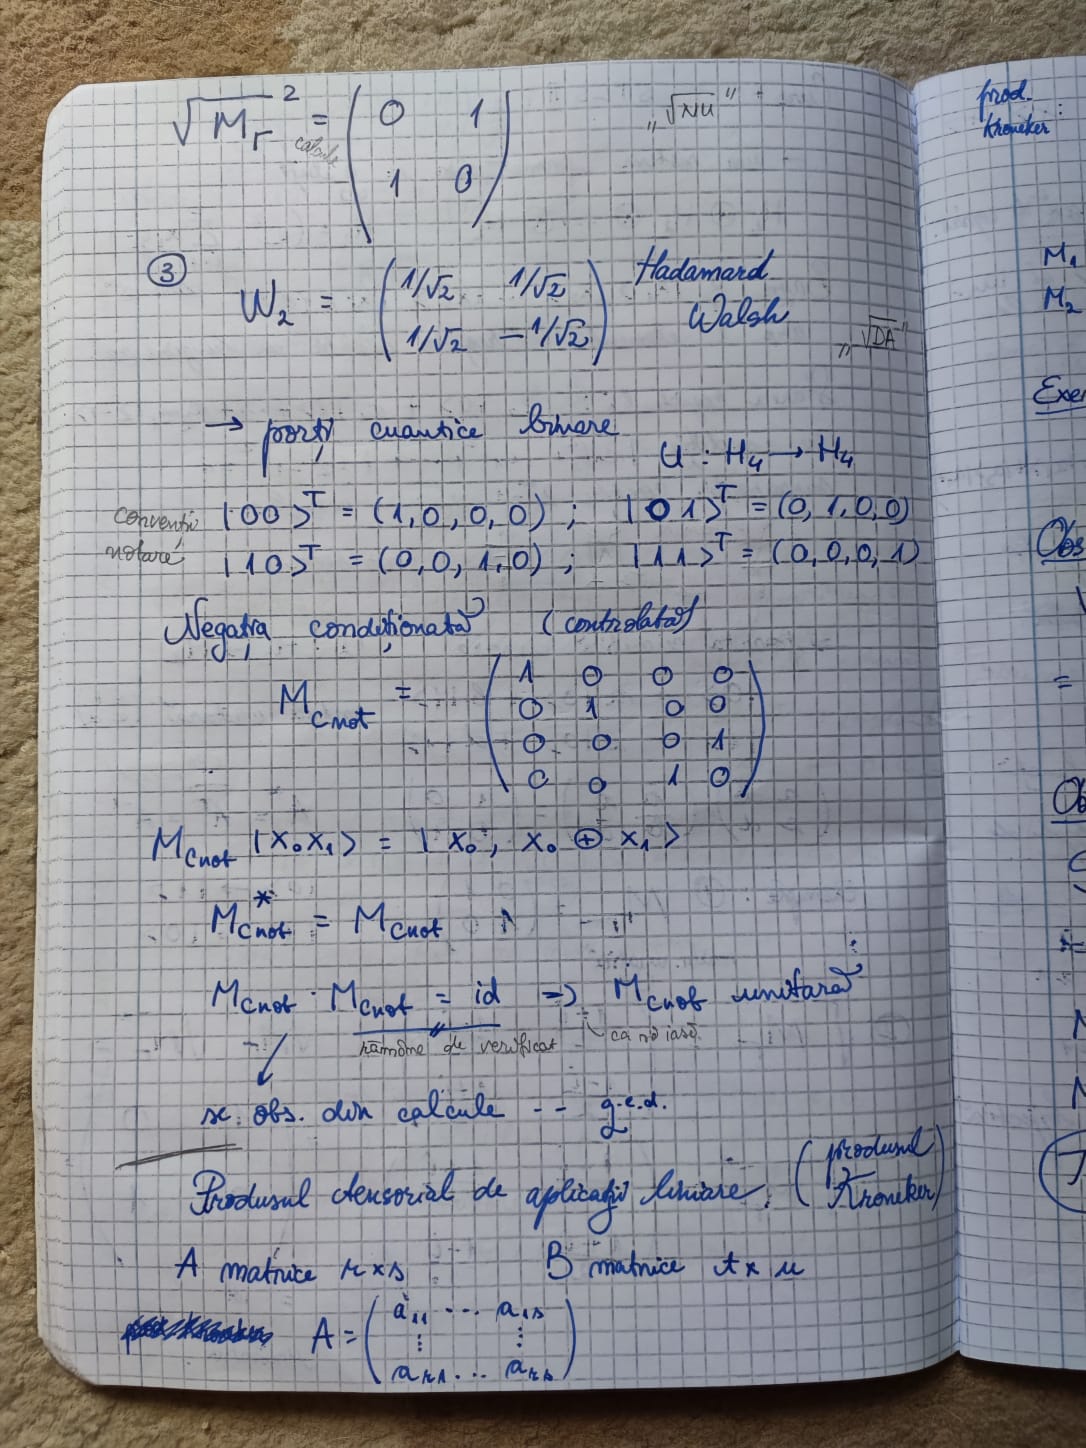 √M_r ² = ( 0 1 „√NU"
calcule
1 0 )
③ W₂ = ( 1/√2 1/√2 Hadamard
1/√2 −1/√2 ) Walsh
„√DA"
→ porți cuantice binare
U : H₄ → H₄
convenții |00>ᵀ = (1,0,0,0) ; |01>ᵀ = (0,1,0,0)
notare |10>ᵀ = (0,0,1,0) ; |11>ᵀ = (0,0,0,1)
Negația condiționată (controlată)
M_Cnot = ( 1 0 0 0
0 1 0 0
0 0 0 1
0 0 1 0 )
M_Cnot |x₀x₁> = |x₀, x₀ ⊕ x₁>
M_Cnot* = M_Cnot
M_Cnot · M_Cnot = id ⇒ M_Cnot unitară
rămâne de verificat ca să iasă
se obs. din calcule -- q.e.d.
Produsul tensorial de aplicații liniare. (produsul
Kroneker)
A matrice r×s B matrice t×u
A = ( a₁₁ ... a₁ₛ
⋮ ⋮
aᵣ₁ ... aᵣₛ )
prod.
Kroneker :
M₁
M₂
=